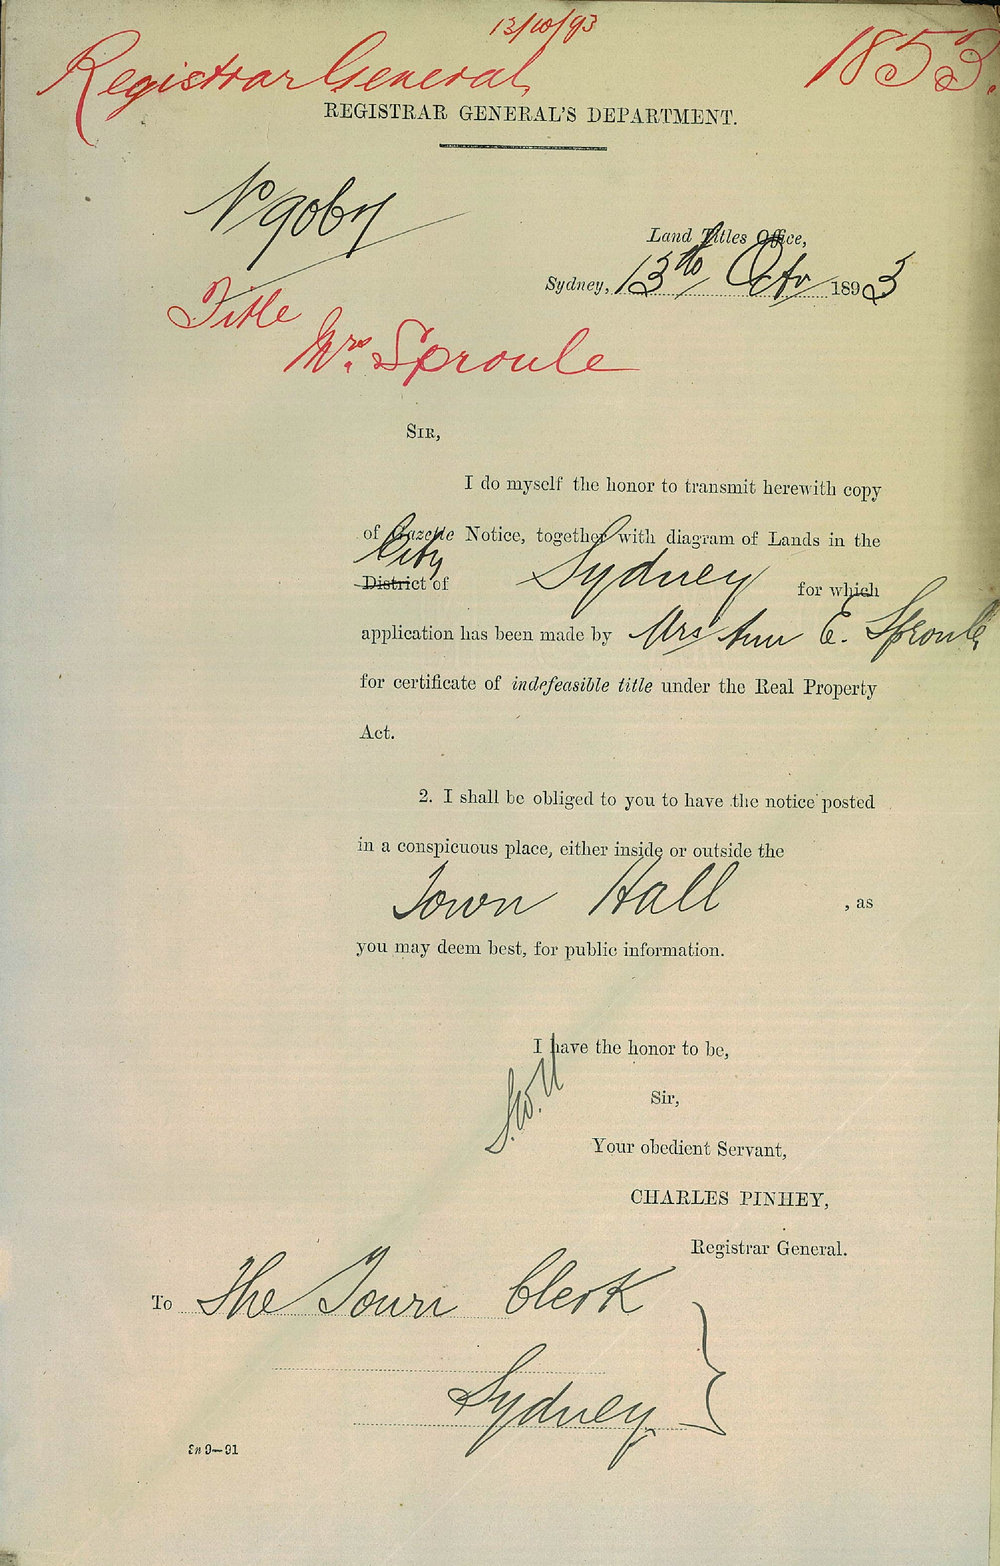 13/10/93
Registrar General
1853.
REGISTRAR GENERAL'S DEPARTMENT.
No 9067
Land Titles Office,
Sydney, 13th Octr 1893
Title
Mrs. Sproule
SIR,
I do myself the honor to transmit herewith copy
of Gazette Notice, together with diagram of Lands in the
City
District of Sydney for which
application has been made by Mrs Ann E. Sproule
for certificate of indefeasible title under the Real Property
Act.
2. I shall be obliged to you to have the notice posted
in a conspicuous place, either inside or outside the
Town Hall , as
you may deem best, for public information.
I have the honor to be,
Sir,
Your obedient Servant,
CHARLES PINHEY,
Registrar General.
To The Town Clerk
Sydney
9—91